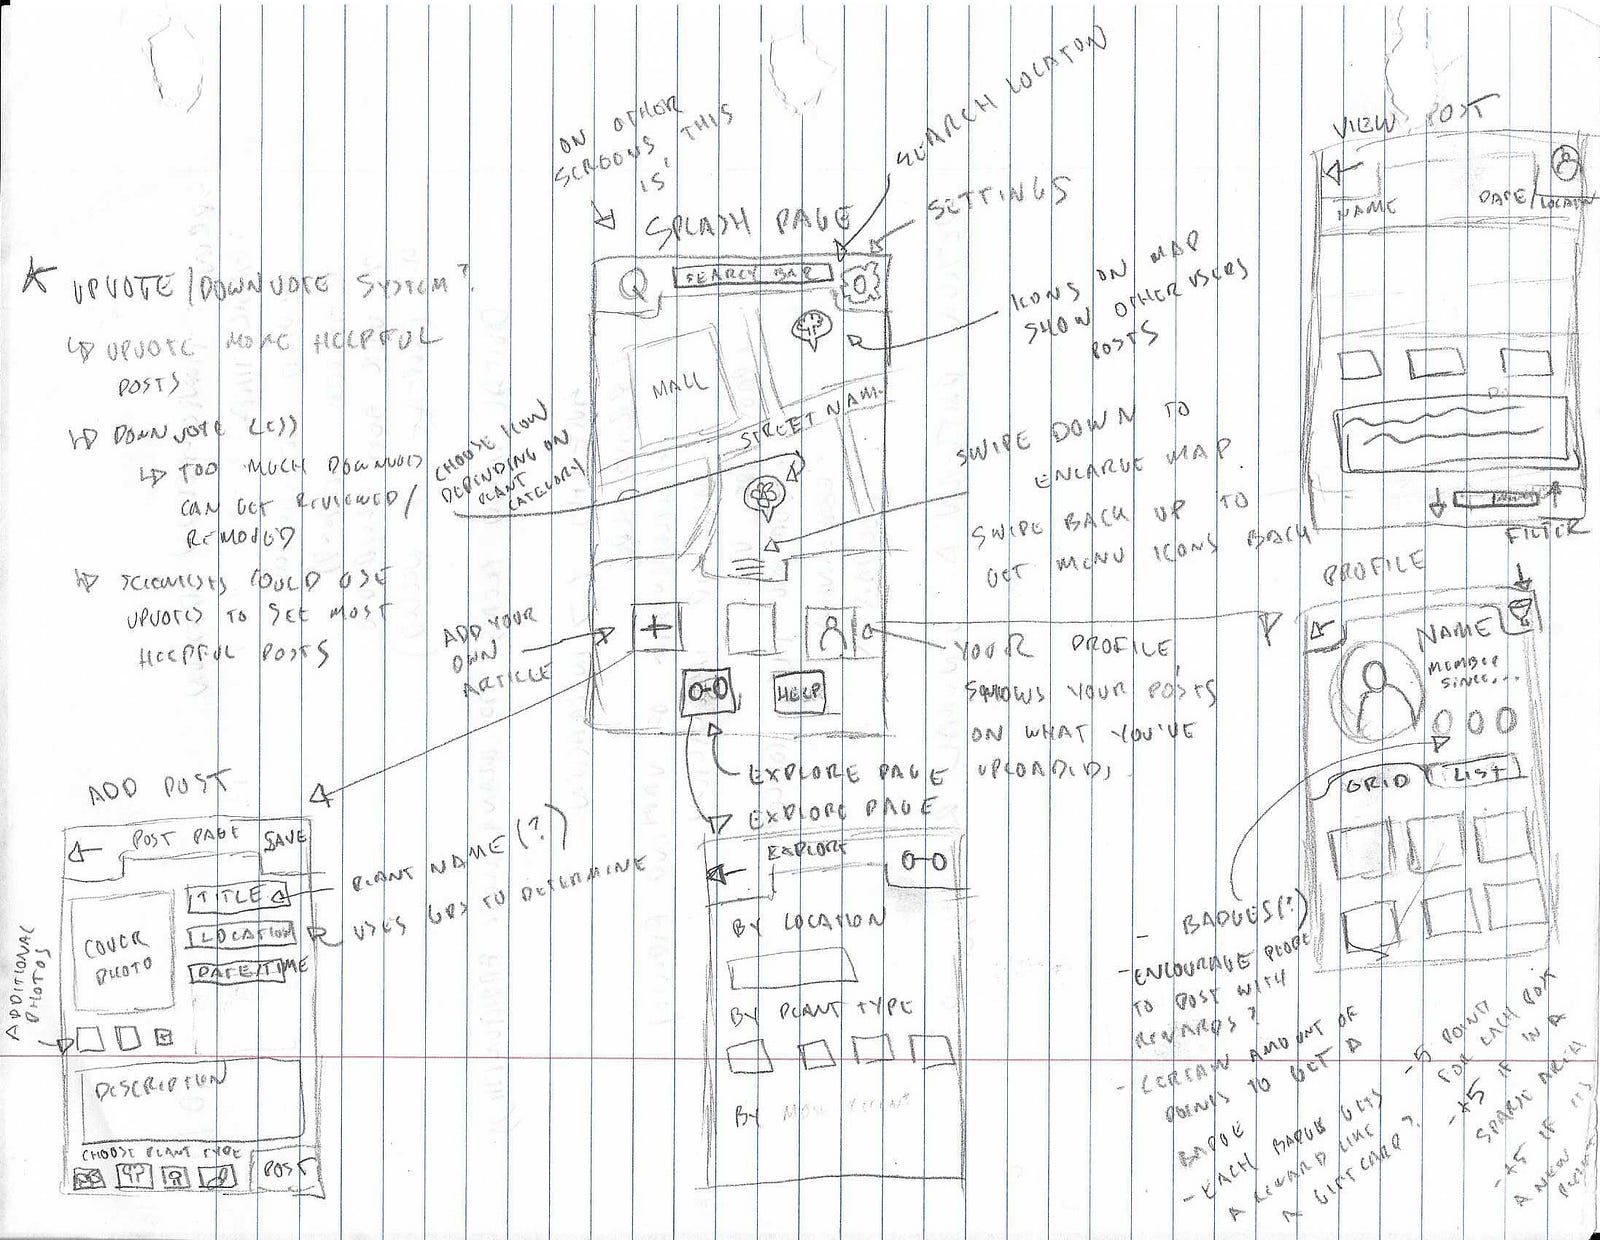 ON OTHER
SCREENS THIS
IS
SEARCH LOCATON
SETTINGS
SPLASH PAGE
SEARCH BAR
MALL
STREET NAME
ICONS ON MAP
SHOW OTHER USERS
POSTS
CHOOSE ICON
DEPENDING ON
PLANT
CATEGORY
SWIPE DOWN TO
ENLARGE MAP
SWIPE BACK UP TO
GET MENU ICONS BACK
ADD YOUR
OWN
ARTICLE
HELP
YOUR PROFILE,
SHOWS YOUR POSTS
ON WHAT YOU'VE
UPLOADED,
EXPLORE PAGE
UPVOTE/DOWNVOTE SYSTEM?
UPVOTE MORE HELPFUL
POSTS
DOWNVOTE LESS
TOO MUCH DOWNVOTES
CAN GET REVIEWED/
REMOVED
SCIENTISTS COULD USE
UPVOTES TO SEE MOST
HELPFUL POSTS
ADD POST
POST PAGE
SAVE
TITLE
LOCATION
DATE/TIME
COVER
PHOTO
PLANT NAME (?)
USES GPS TO DETERMINE
ADDITIONAL
PHOTOS
DESCRIPTION
CHOOSE PLANT TYPE
POST
EXPLORE PAGE
EXPLORE
BY LOCATION
BY PLANT TYPE
BY MOST RECENT
VIEW POST
NAME
DATE/LOCATION
FILTER
PROFILE
NAME
MEMBER
SINCE...
GRID
LIST
- BADGES(?)
- ENCOURAGE PEOPLE
TO POST WITH
REWARDS?
- CERTAIN AMOUNT OF
POINTS TO GET A
BADGE
- EACH BADGE GETS
A REWARD LIKE
A GIFT CARD?
- 5 POINT
FOR EACH POST
- +5 IF IN A
SPARSE AREA
- +5 IF ITS
A NEW